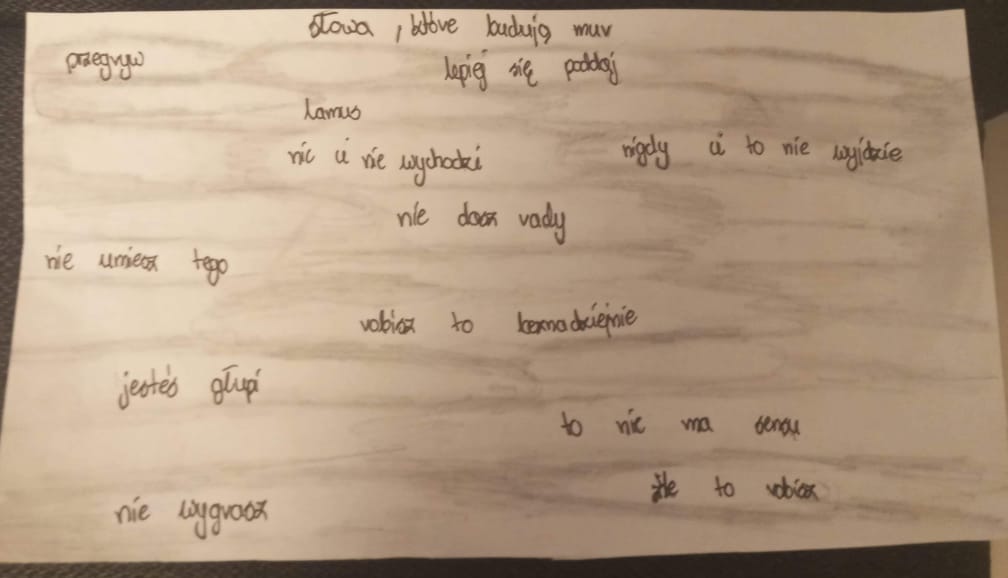 słowa, które budują mur
przegryw
lepiej się poddaj
lamus
nic ci nie wychodzi
nigdy ci to nie wyjdzie
nie dasz rady
nie umiesz tego
robisz to beznadziejnie
jesteś głupi
to nie ma sensu
źle to robisz
nie wygrasz